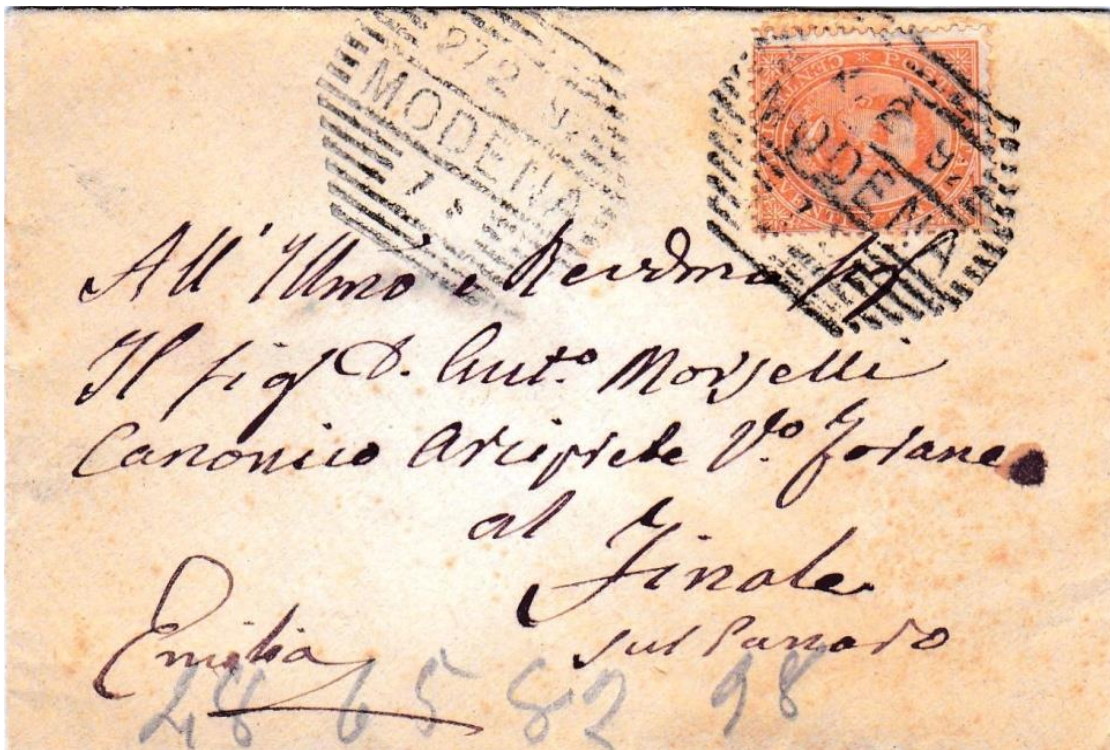 27 2
MODENA
7 S
POSTE
CENT
VENTI
MODENA
All' Illmo e Revdmo Sig
Il Sig D. Ant.o Morselli
Canonico Arciprete V.o Forane
al
Finale
sul Panaro
Emilia
28 65 82 98